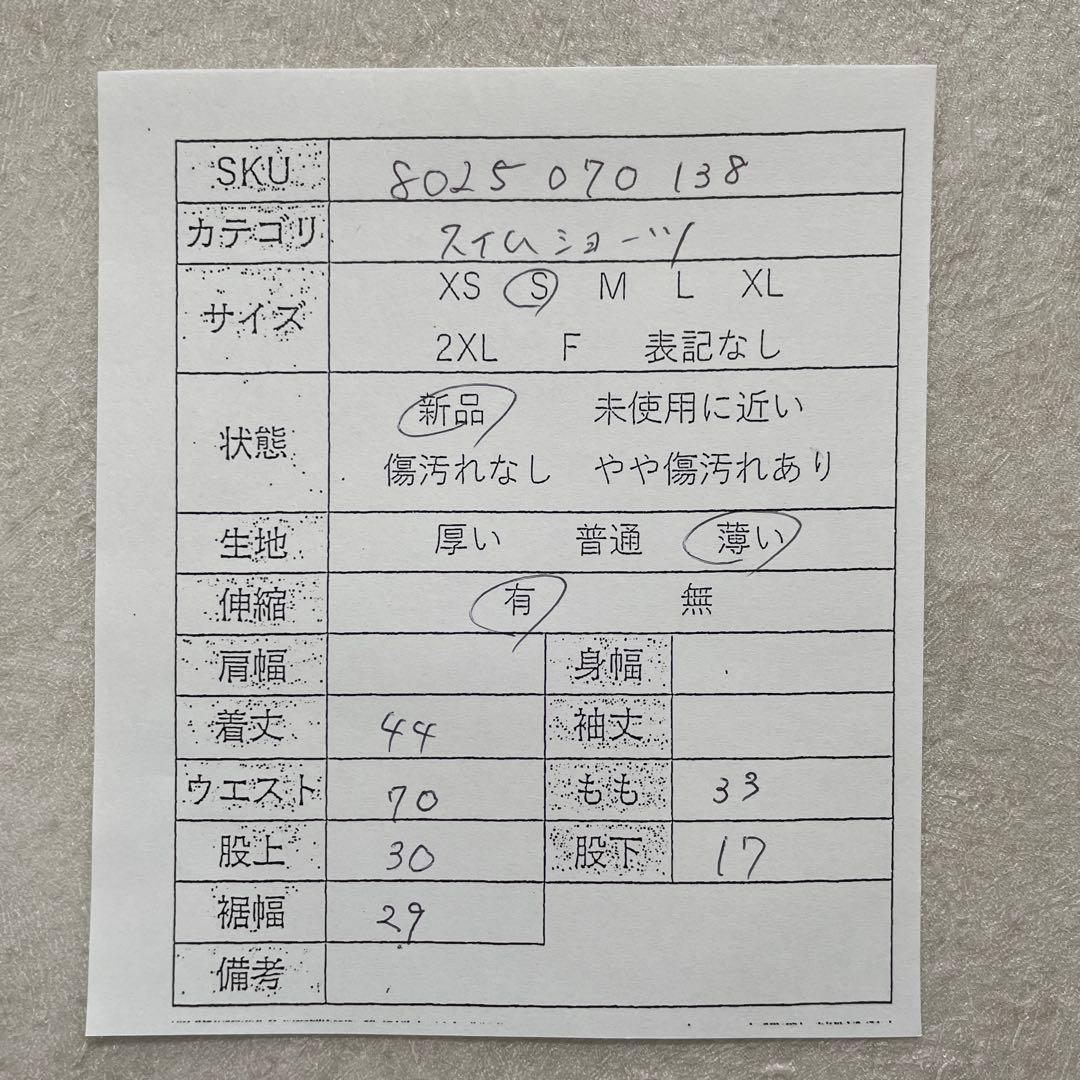 SKU 8025 070 138
カテゴリ スイムショーツ
サイズ XS S M L XL
2XL F 表記なし
状態 新品 未使用に近い
傷汚れなし やや傷汚れあり
生地 厚い 普通 薄い
伸縮 有 無
肩幅 身幅
着丈 44 袖丈
ウエスト 70 もも 33
股上 30 股下 17
裾幅 29
備考